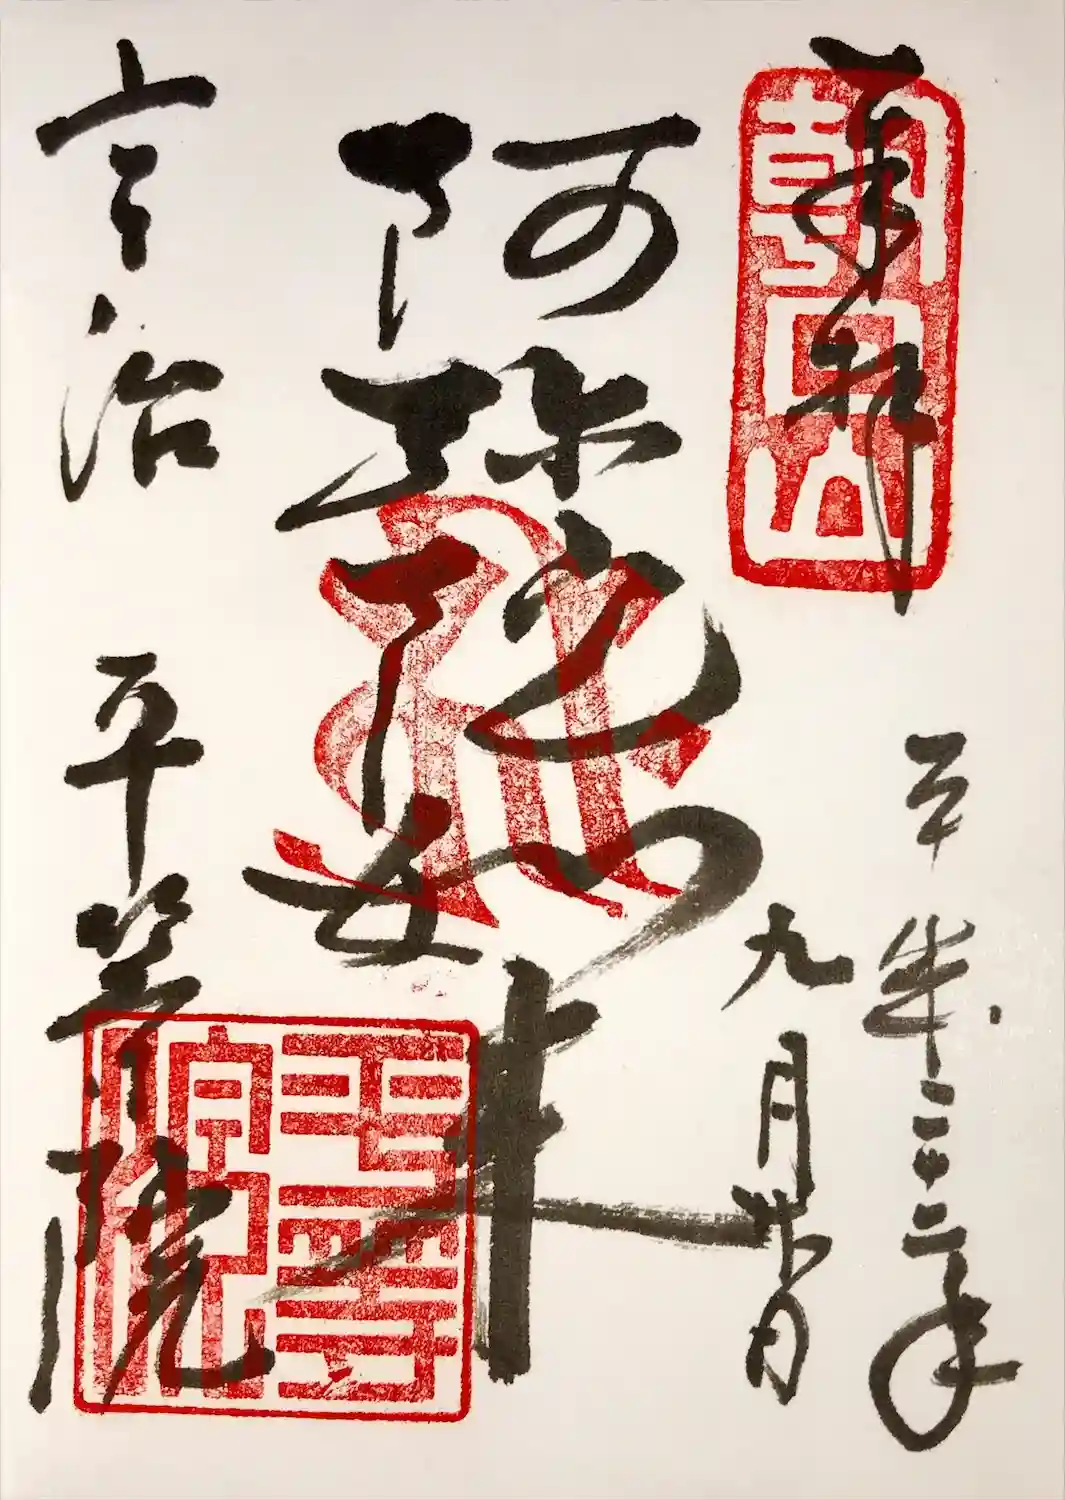 奉拝
朝日山
平成二十二年
九月廿日
阿弥陀如来
宇治 平等院
平等院印